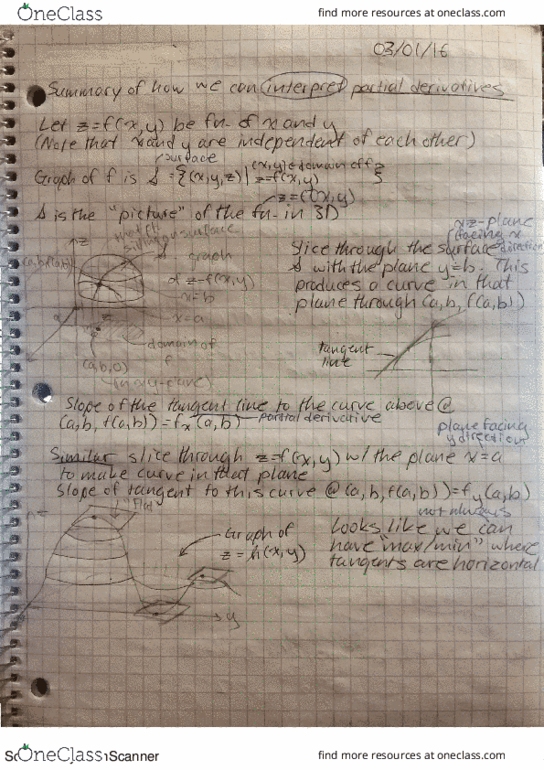 OneClass
find more resources at oneclass.com
03/01/16
Summary of how we can interpret partial derivatives
Let z=f(x,y) be fn- of x and y
(Note that x and y are independent of each other)
surface
Graph of f is S = {(x,y,z)| (x,y) ∈ domain of f, z=f(x,y)}
z=f(x,y)
S is the "picture" of the fn- in 3D
xz-plane
(facing x direction)
Slice through the surface
S with the plane y=b. This
produces a curve in that
plane through (a,b,f(a,b))
z
surface
graph
of z=f(x,y)
x=b
x=a
domain of
f
(a,b,0)
(in xy-plane)
tangent
line
Slope of the tangent line to the curve above @
(a,b,f(a,b)) = fx(a,b) partial derivative
plane facing
y direction
Similar slice through z=f(x,y) w/ the plane x=a
to make curve in that plane
Slope of tangent to this curve @ (a,b,f(a,b)) = fy(a,b)
not always
Looks like we can
have "max/min" where
tangents are horizontal
Graph of
z=h(x,y)
y
OneClass
Scanner
find more resources at oneclass.com